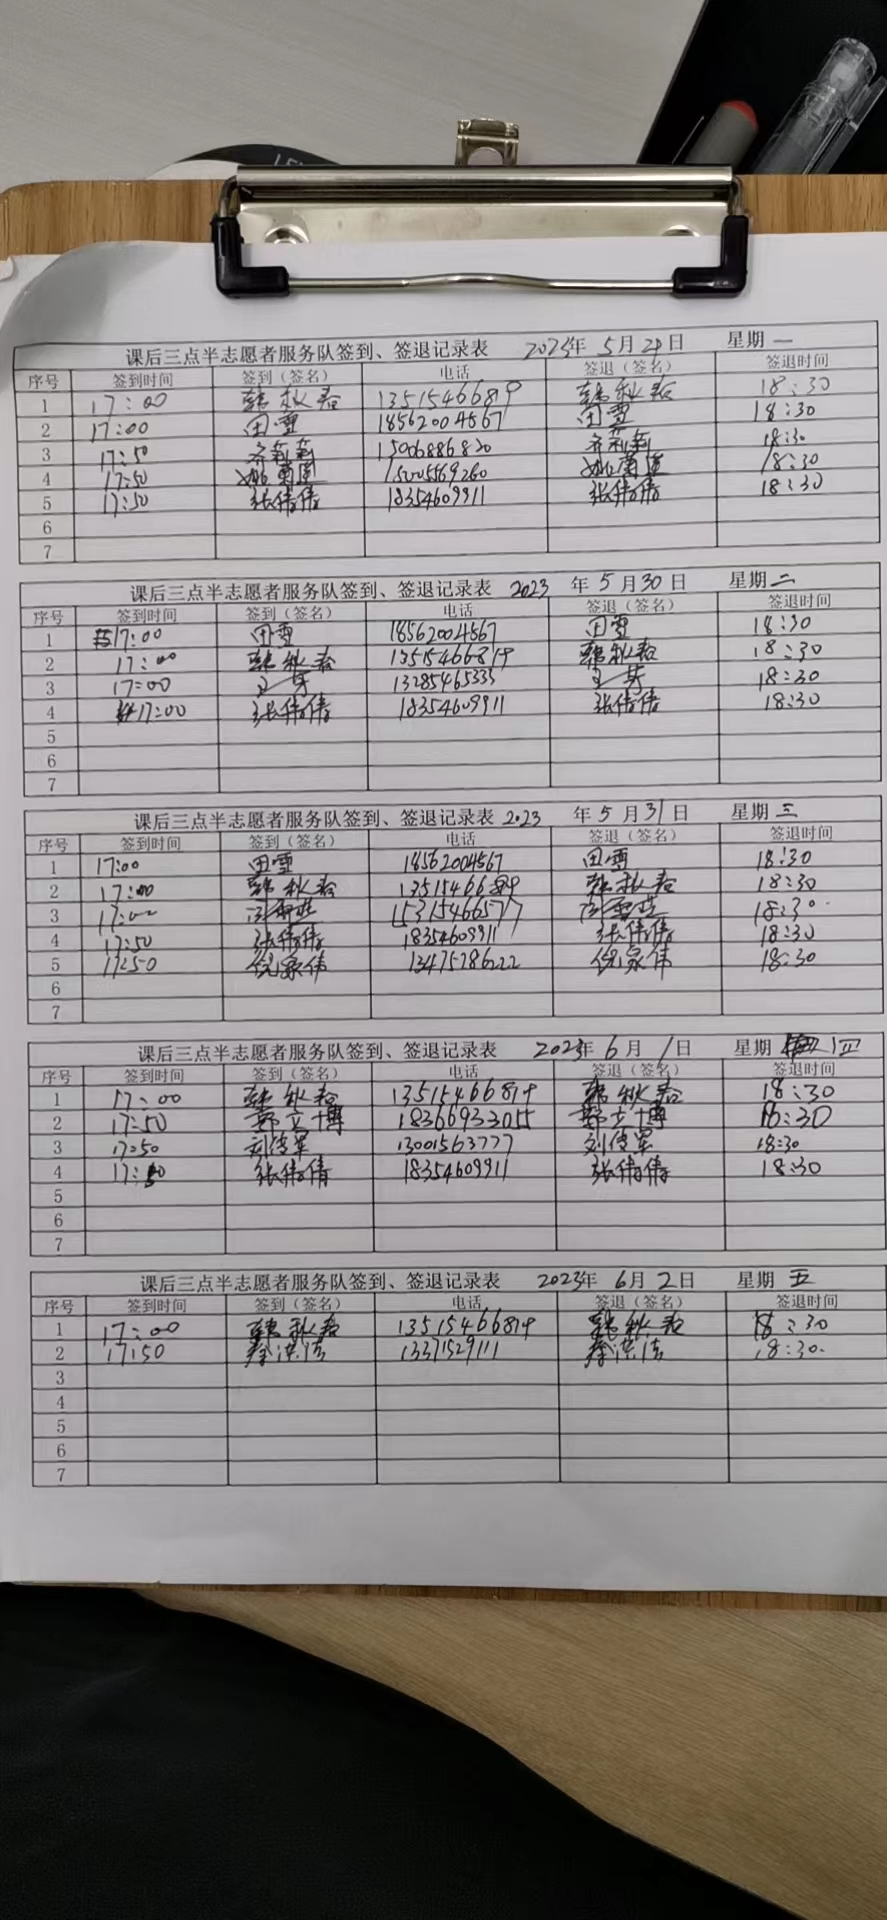 课后三点半志愿者服务队签到、签退记录表 2023年 5月29日 星期一
序号 签到时间 签到（签名） 电话 签退（签名） 签退时间
1 17:00 韩秋春 13515466819 韩秋春 18:30
2 17:00 田雪 18562004567 田雪 18:30
3 17:50 齐莉莉 15006886820 齐莉莉 18:30
4 17:50 15005569260 18:30
5 17:50 张倩倩 18354609911 张倩倩 18:30
6
7
课后三点半志愿者服务队签到、签退记录表 2023 年 5月30日 星期二
序号 签到时间 签到（签名） 电话 签退（签名） 签退时间
1 17:00 田雪 18562004567 田雪 18:30
2 17:00 韩秋春 13515466819 韩秋春 18:30
3 17:00 13285465333 18:30
4 17:00 张倩倩 18354609911 张倩倩 18:30
5
6
7
课后三点半志愿者服务队签到、签退记录表 2023 年 5月31日 星期三
序号 签到时间 签到（签名） 电话 签退（签名） 签退时间
1 17:00 田雪 18562004567 田雪 18:30
2 17:00 韩秋春 13515466819 韩秋春 18:30
3 17:00 15315466577 18:30
4 17:50 张倩倩 18354609911 张倩倩 18:30
5 17:50 倪家伟 13475286222 倪家伟 18:30
6
7
课后三点半志愿者服务队签到、签退记录表 2023年 6月 1日 星期 四
序号 签到时间 签到（签名） 电话 签退（签名） 签退时间
1 17:00 韩秋春 13515466819 韩秋春 18:30
2 17:50 郭立博 18366933055 郭立博 18:30
3 17:50 刘传军 13001563777 刘传军 18:30
4 17:50 张倩倩 18354609911 张倩倩 18:30
5
6
7
课后三点半志愿者服务队签到、签退记录表 2023年 6月2日 星期 五
序号 签到时间 签到（签名） 电话 签退（签名） 签退时间
1 17:00 韩秋春 13515466819 韩秋春 18:30
2 17:50 秦洪洁 13371529111 秦洪洁 18:30
3
4
5
6
7